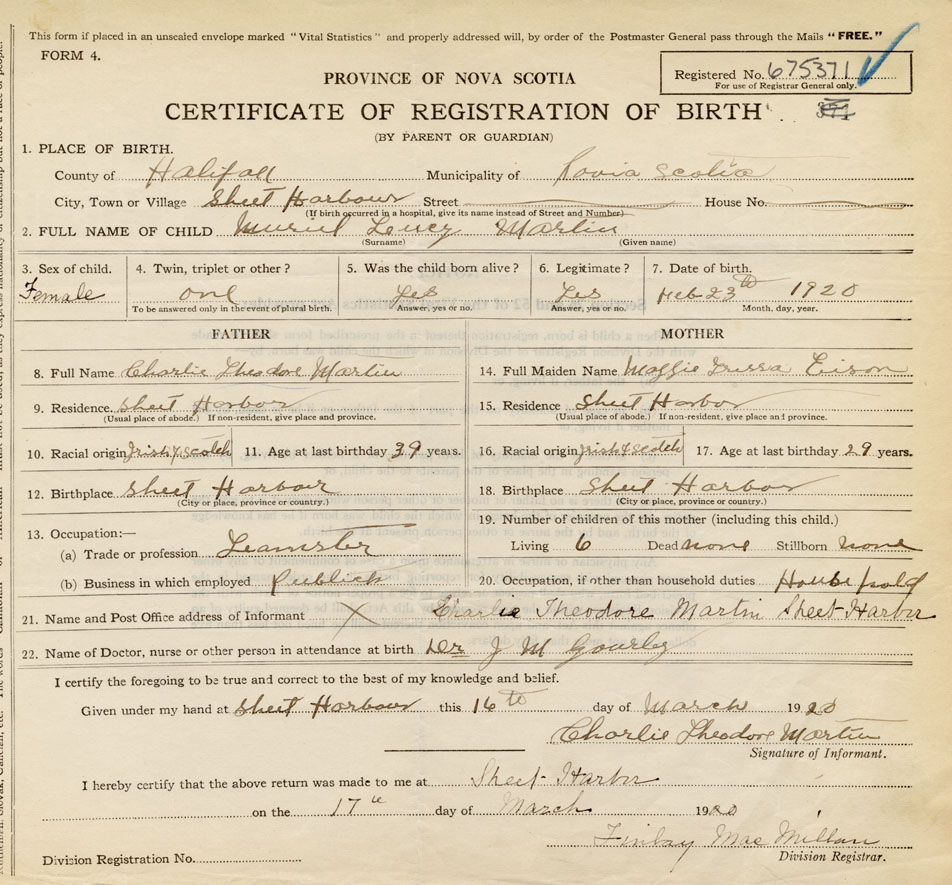 This form if placed in an unsealed envelope marked "Vital Statistics" and properly addressed will, by order of the Postmaster General pass through the Mails "FREE."
FORM 4.
Registered No. 675371
For use of Registrar General only.
PROVINCE OF NOVA SCOTIA
CERTIFICATE OF REGISTRATION OF BIRTH
371
(BY PARENT OR GUARDIAN)
1. PLACE OF BIRTH.
County of Halifax Municipality of Novia Scotia
City, Town or Village Sheet Harbour Street House No.
(If birth occurred in a hospital, give its name instead of Street and Number)
2. FULL NAME OF CHILD Muriel Martin
(Surname) (Given name)
3. Sex of child. 4. Twin, triplet or other? 5. Was the child born alive? 6. Legitimate? 7. Date of birth.
Female one Yes Yes Feb 23th 1920
To be answered only in the event of plural birth. Answer, yes or no. Answer, yes or no. Month, day, year.
FATHER MOTHER
8. Full Name Charlie Theodore Martin 14. Full Maiden Name Maggie
9. Residence. Sheet Harbor 15. Residence Sheet Harbor
(Usual place of abode.) If non-resident, give place and province. (Usual place of abode.) If non-resident, give place and province.
10. Racial origin Irish & Scotch 11. Age at last birthday 39 years. 16. Racial origin Irish & Scotch 17. Age at last birthday 29 years.
12. Birthplace Sheet Harbour 18. Birthplace Sheet Harbor
(City or place, province or country.) (City or place, province or country.)
13. Occupation:— 19. Number of children of this mother (including this child.)
(a) Trade or profession Teamster Living 6 Dead none Stillborn none
(b) Business in which employed Publick 20. Occupation, if other than household duties House hold
21. Name and Post Office address of Informant X Charlie Theodore Martin Sheet Harbor
22. Name of Doctor, nurse or other person in attendance at birth Der J M Gourley
I certify the foregoing to be true and correct to the best of my knowledge and belief.
Given under my hand at Sheet Harbour this 16th day of March 1920
Charlie Theodore Martin
Signature of Informant.
I hereby certify that the above return was made to me at Sheet Harbor
on the 17th day of March 1920
Finlay Mac Millan
Division Registration No. Division Registrar.